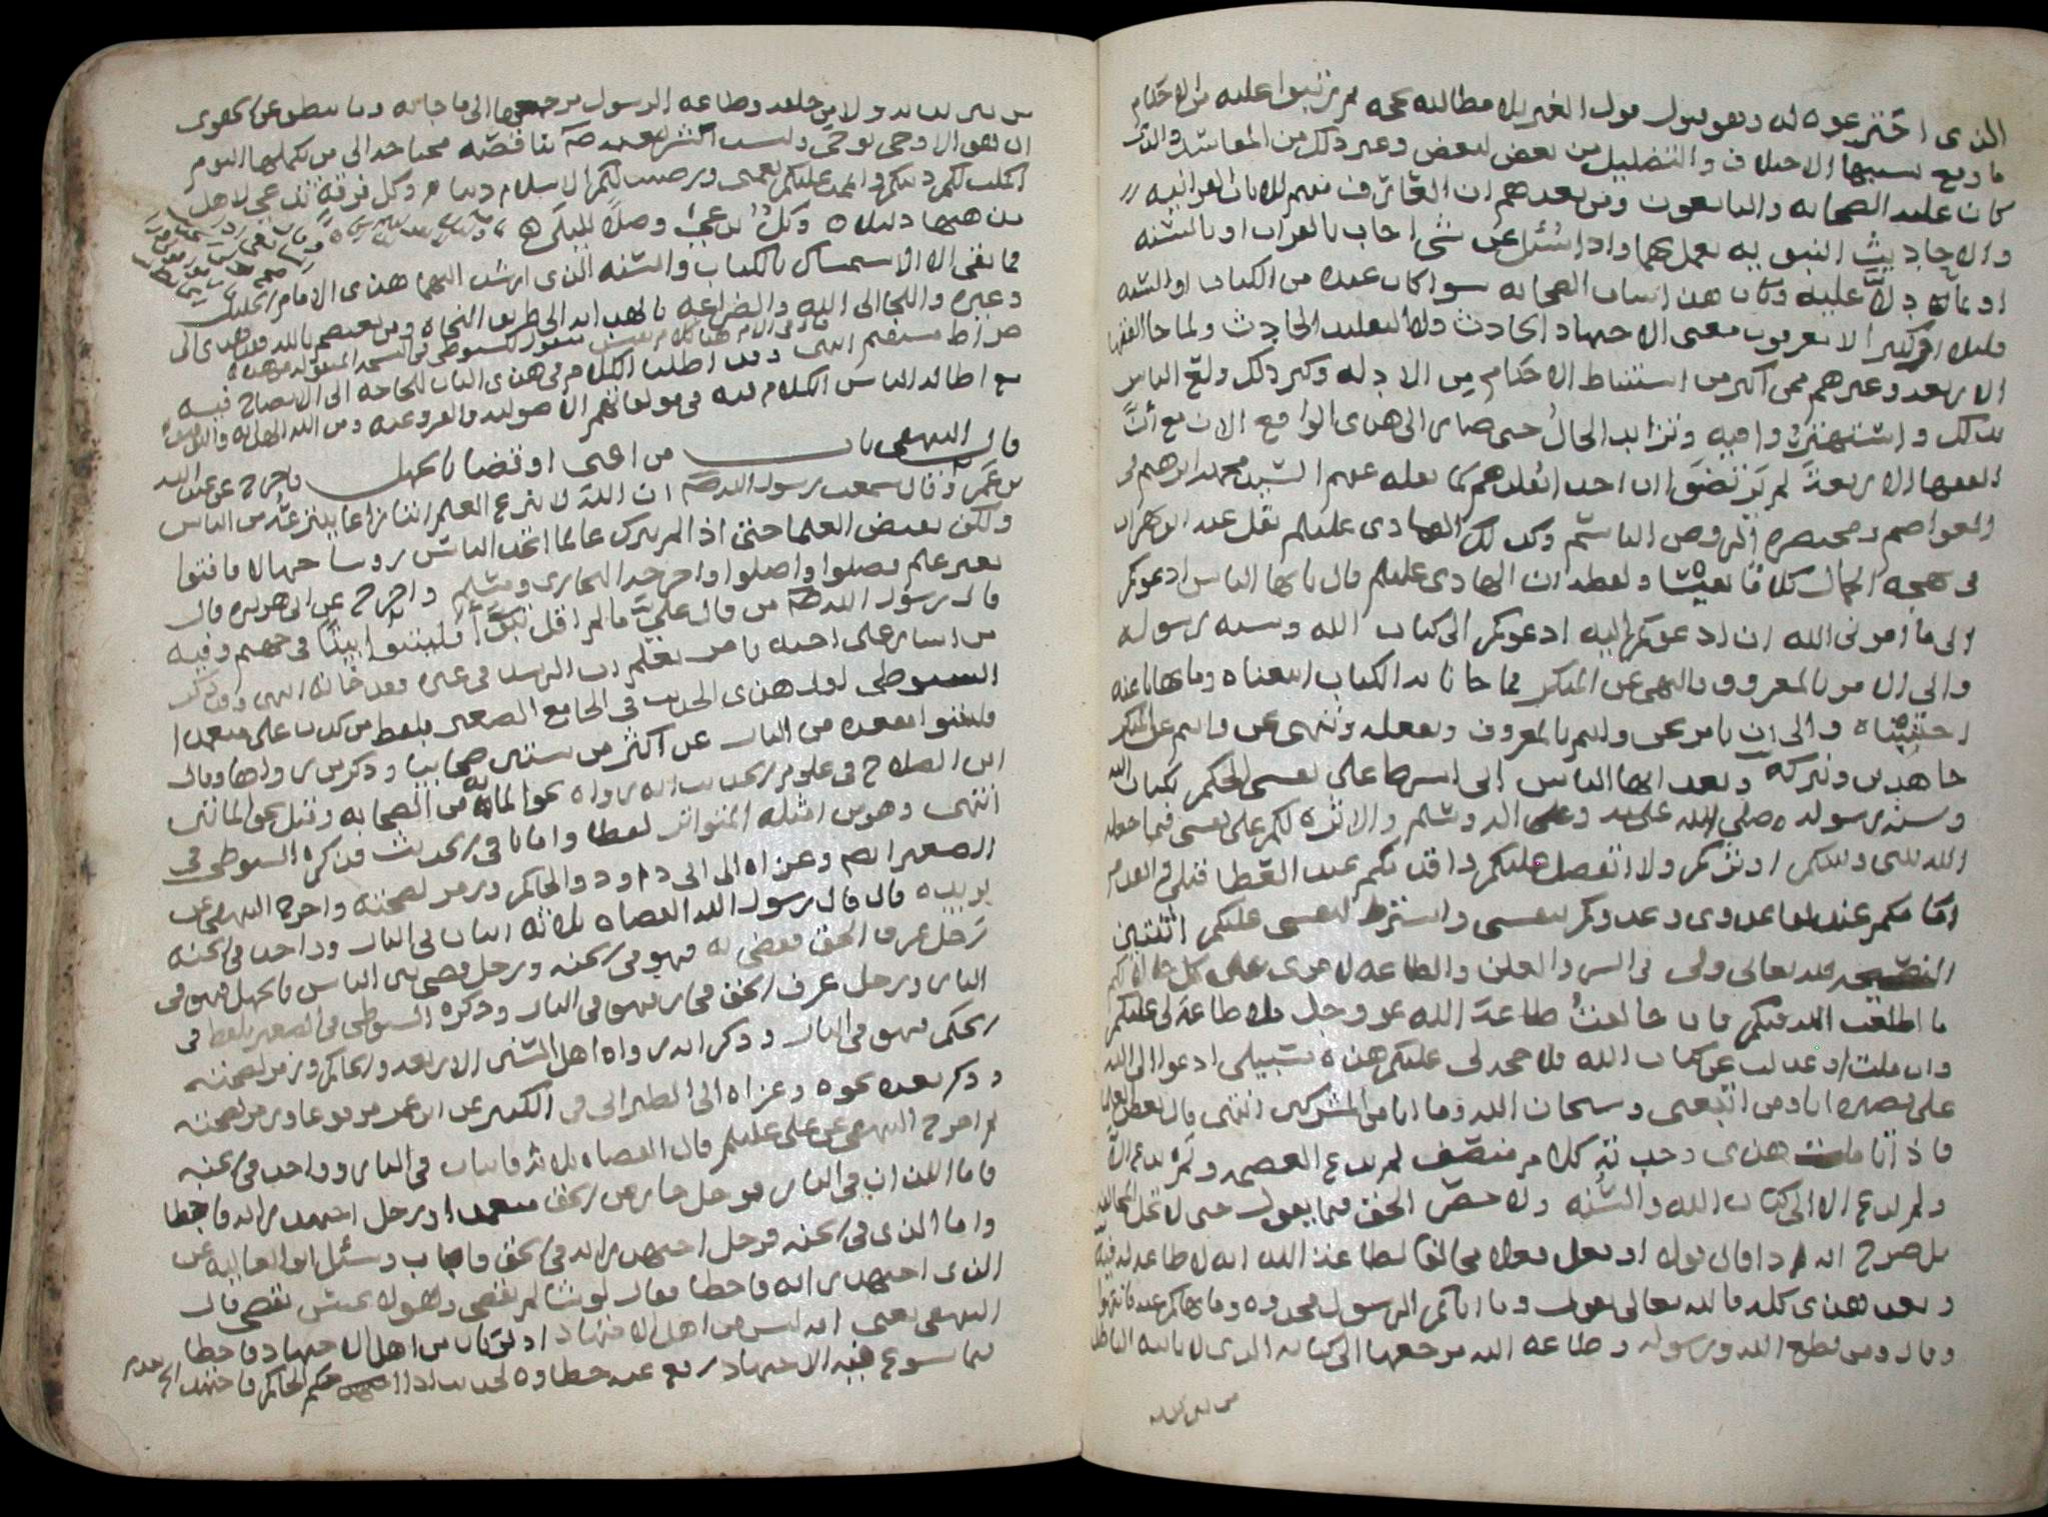 الذي اخترعوه له وهو قبول قول الغير بلا مطالبة بحجه ثم رتبوا عليه من الاحكام
ما وقع بسببها الاختلاف والتضليل من بعض لبعض وغير ذلك من المفاسد والذي
كان عليه الصحابه والتابعون ومن بعدهم ان العارف منهم للايات القرانيه
والاحاديث النبويه يعمل بهما واذا سُئل عن شي اجاب بالقران او بالسنه
او بما دلّا عليه وكان هذا شان الصحابه سوا كان عنده من الكتاب او السنه
قليل او كثير لا يعرفون معنى الاجتهاد الحادث ولا التقليد الحادث ولما جا الفقها
الاربعه وغيرهم ممن اكثر من استنباط الاحكام من الادله وكثر ذلك ولع الناس
بذلك واشتهتروا فيه وتزايد الحالُ حتى صار الى هذي الواقع الان مع أنَّ
الفقها الاربعةَ لم يرتضوا ان احدا يقلدهم كما نقله عنهم السيد محمد ابرهيم في
العواصم ومختصره الروض الباسم وكذلك الهادي عليلم نقل عنه
في بهجه الجمال كلاما نفيسا ولفظه ان الهادي عليلم قال يا ايها الناس ادعوكم
الى ما امرني الله ان ادعوكم اليه ادعوكم الى كتاب الله وسنه رسوله
والى الامر بالمعروف والنهي عن المنكر فما جانا به الكتاب اتبعناه وما نهانا عنه
اجتنبناه والى ان نامر نحن وانتم بالمعروف ونفعله وننهى نحن وانتم عن المنكر
جاهدين ونتركه وبعد ايها الناس اني اشرط على نفسي الحكم بكتاب الله
وسنه رسوله صلى الله عليه وعلى اله وسلم والاثره لكم على نفسي فيما جعله
الله بيني وبينكم اوثركم ولا اتفضل عليكم واقدمكم عند العطا قبلي واتقدم
امامكم عند لقا عدوي وعدوكم بنفسي واشترط لنفسي عليكم اثنتين
النصيحه لله تعالى ولي في السر والعلن والطاعه لامري على كل حالاتكم
ما اطعت الله فيكم فان خالفتُ طاعة الله عز وجل فلا طاعة لي عليكم
وان ملت او عدلت عن كتاب الله فلا حجه لي عليكم هذه سبيلي ادعوا الى الله
على بصيره انا ومن اتبعني وسبحان الله وما انا من المشركين انتهى قال بعض
فاذا تاملت هذي وجدته كلام منصف لم يدع العصمه
ولم يدع الا الى كتاب الله والسُنه ولا حصر الحق فيما يقول حتى لا تحل
بل صرح انه اذا قال قولا او فعل فعلا مخالفا لطاعة الله انه لا طاعه له فيه
وبعد هذي كله فالله تعالى يقول وما اتاكم الرسول فخذوه وما نهاكم عنه فانتهوا
وقال ومن يطع الله ورسوله وطاعه الله مرجعها الى كتابه الذي لا ياتيه الباطل
من بين يديه
من بين يديه ولا من خلفه وطاعه الرسول مرجعها الى ما جا به وما ينطق عن الهوى
ان هو الا وحي يوحى وليست الشريعه ناقصه محتاجه الى من يكملها اليوم
اكملت لكم دينكم واتممت عليكم نعمتي ورضيت لكم الاسلام دينا وكل فرقة تدعي لاهل
مذهبها دليلا وكلٌ يدعي وصلاً لليلى
فما بقي الا الاستمساك بالكتاب والسنه الذي ارشد اليهما هذي الامام الجليل
وغيره واللجا الى الله والضراعه بالهدايه الى طريق النجاه ومن يعتصم بالله فقد هدي الى
صراط مستقيم انتهى وقد اطلنا الكلام في هذي الباب للحاجه الى الايضاح فيه
مع اطاله الناس الكلام فيه في مولفاتهم الاصوليه والفروعيه ومن الله الهدايه
قال البيهقي باب من افتى او قضا بالجهل واخرج عن عبد الله
بن عمر وقال سمعت رسول الله صلم ان الله لا ينزع العلم انتزاعا ينتزعه من الناس
ولكن بقبض العلما حتى اذا لم يترك عالما اتخذ الناس روسا جهالا فافتوا
بغير علم فضلوا واضلوا واخرجه البخاري ومسلم واخرج عن ابي هريره قال
قال رسول الله صلم من قال علي ما لم اقل فليتبوا بيتا في جهنم وفيه
من اشار على اخيه بامر يعلم ان الرشد في غيره فقد خانه انتهى وقد ذكر
السيوطي اول هذي الحديث في الجامع الصغير بلفظ من كذب علي متعمدا
فليتبوا مقعده من النار عن اكثر من ستين صحابيا وذكر من رواها وقال
ابن الصلاح في علوم الحديث انه رواه نحو المايه من الصحابه وقيل نحو المائتي
انتهى وهو من امثله المتواتر لفظا واما باقي الحديث فذكره السيوطي في
الصغير ايضا وعزاه الى ابي داود والحاكم ورمز لصحته واخرج البيهقي عن
بريده قال قال رسول الله القضاه ثلاثه اثنان في النار وواحد في الجنه
رَجل عرف الحق فقضى به فهو في الجنه ورجل قضى بين الناس بالجهل فهو في
النار ورجل عرف الحق فجار فهو في النار وذكره السيوطي في الصغير بلفظ في
الحكم فهو في النار وذكر انه رواه اهل السنن الاربعه والحاكم ورمز لصحته
وذكر بعده نحوه وعزاه الى الطبراني في الكبير عن ابن عمر مرفوعا ورمز لصحته
ثم اخرج البيهقي عن علي عليلم قال القضاه ثلاثه فاثنان في النار وواحد في الجنه
فاما اللذان في النار فرجل جار عن الحق متعمدا ورجل اجتهد رايه فاخطا
واما الذي في الجنه فرجل اجتهد رايه في الحق فاصاب وسئل ابو العاليه عن
الذي اجتهد رايه فاخطا فقال لو شا لم يقض وهو لا يحسن يقضي قال
البيهقي يعني انه ليس من اهل الاجتهاد اذ لو كان من اهل الاجتهاد فاخطا
فيما يسوغ فيه الاجتهاد رفع عنه خطاوه لحديث اذا حكم الحاكم فاجتهد